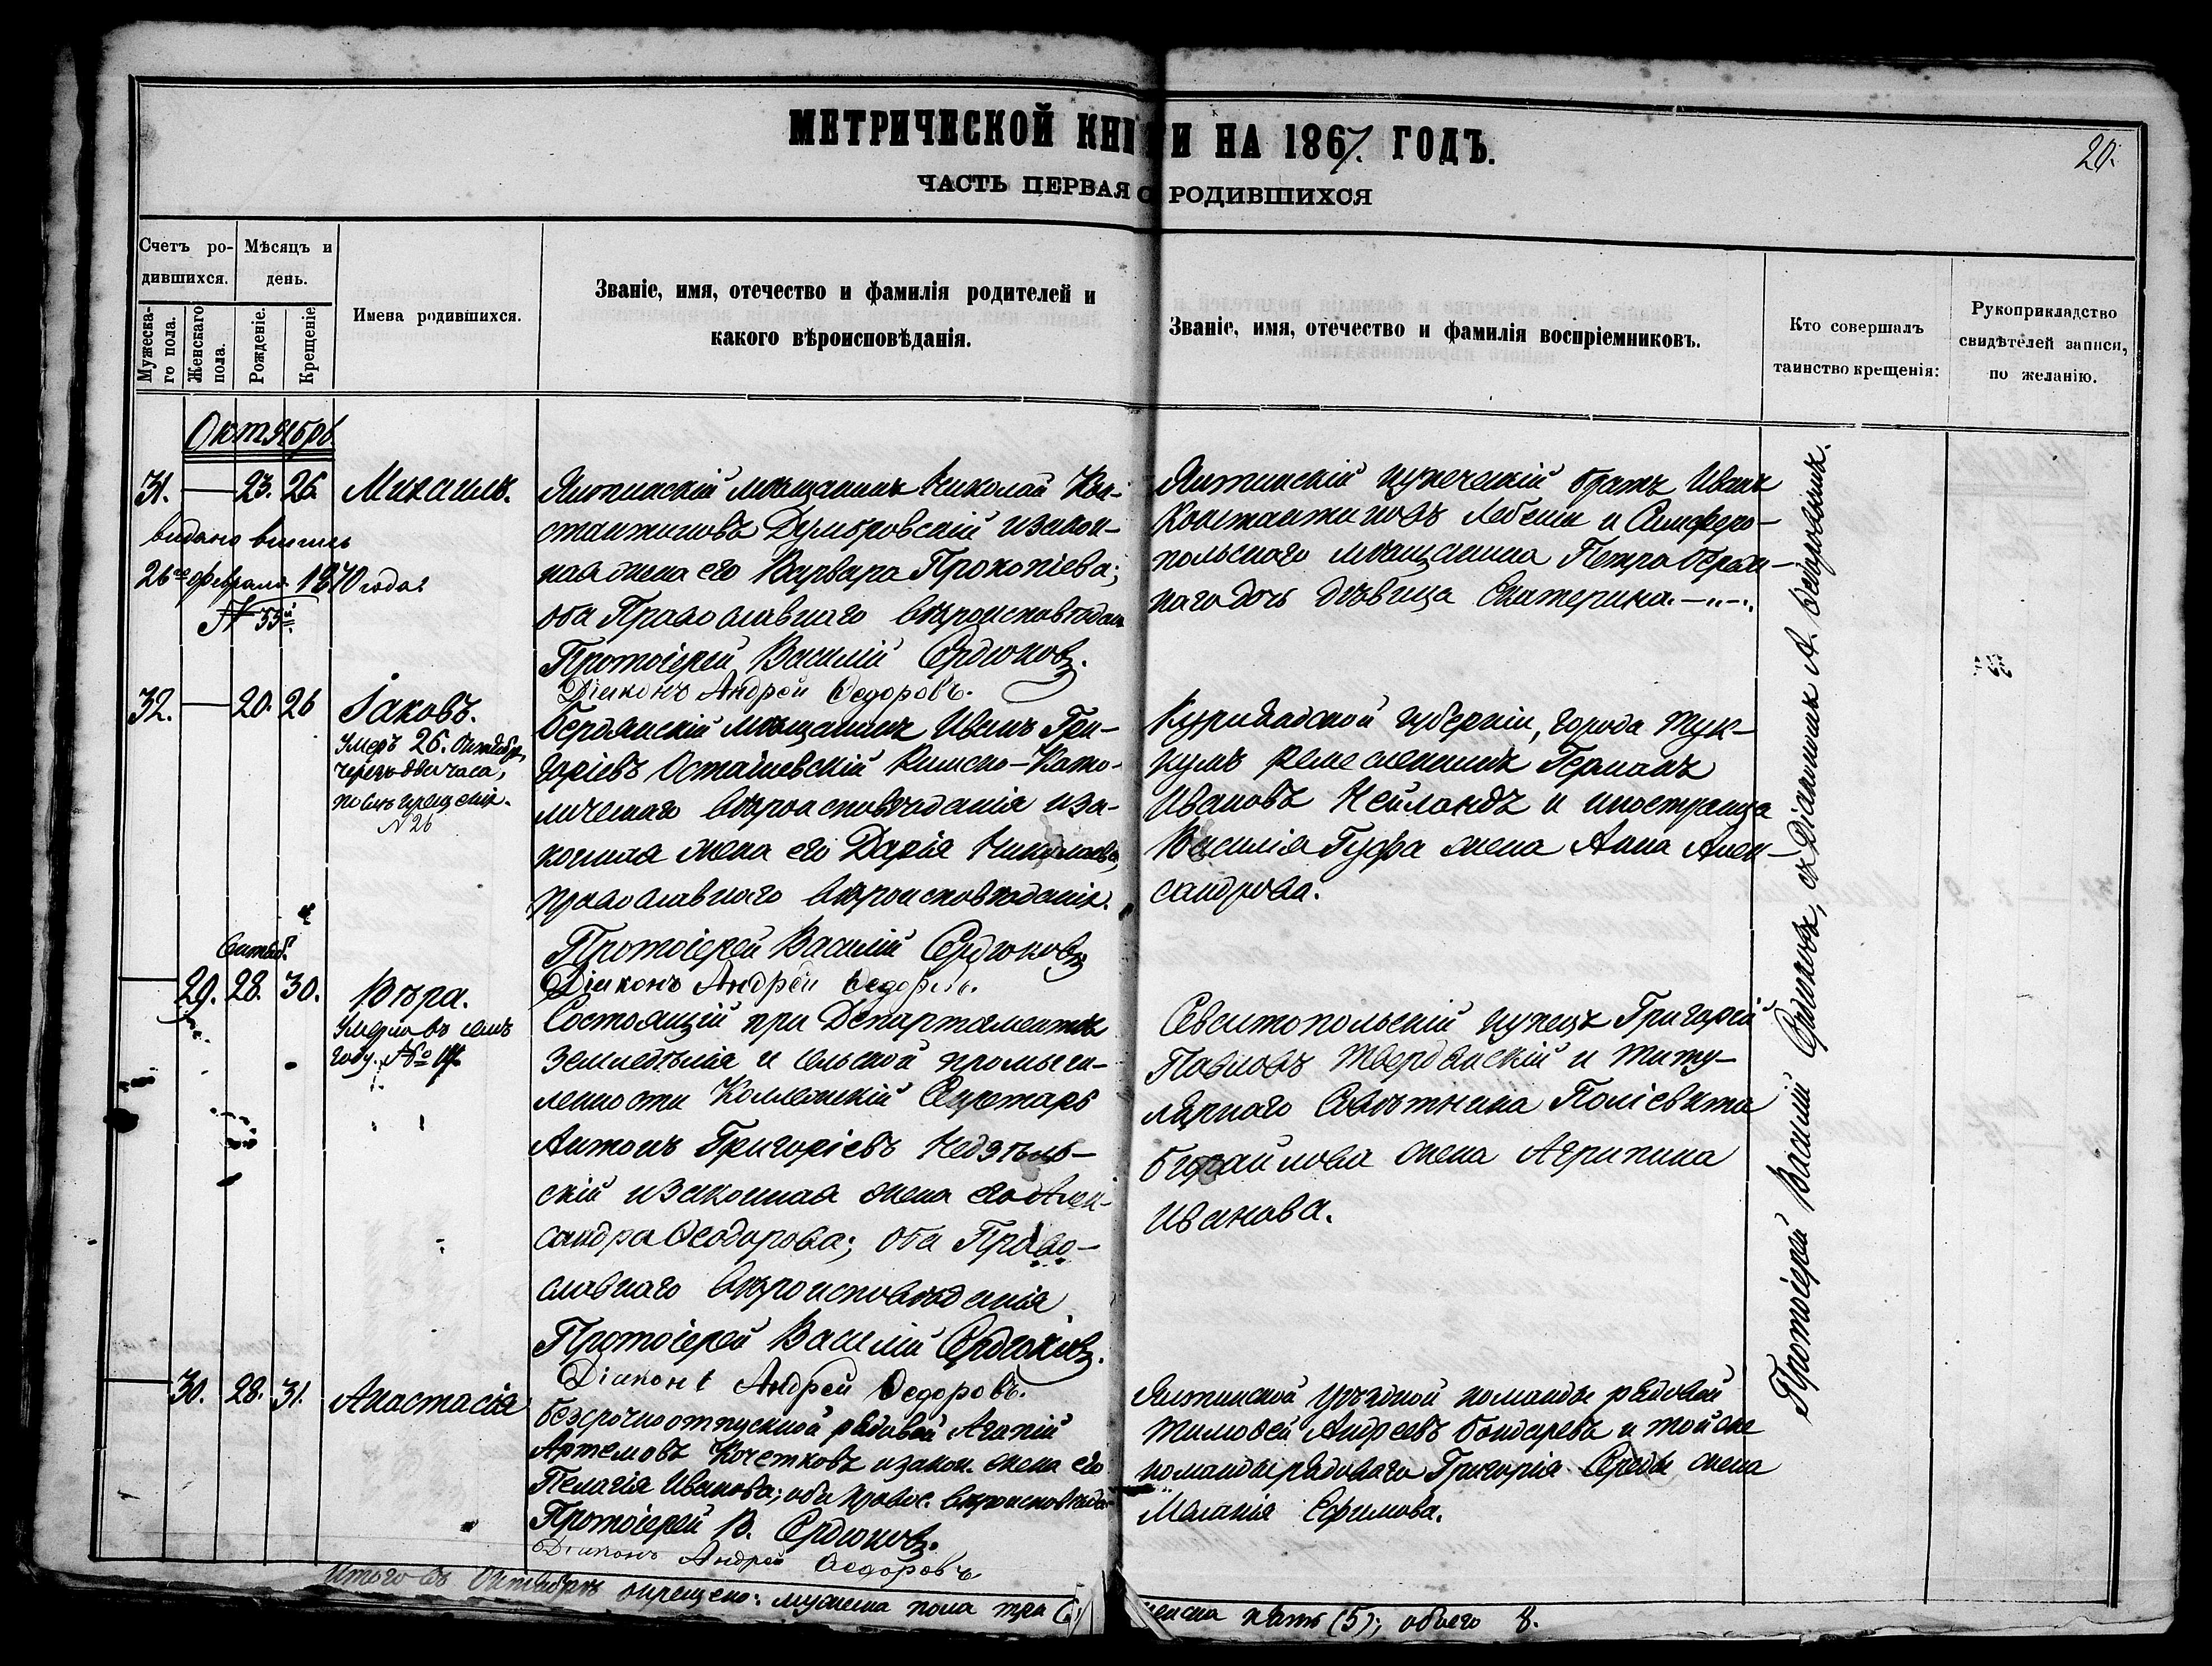 МЕТРИЧЕСКОЙ КНИГИ НА 1867. ГОДЪ.
20.
ЧАСТЬ ПЕРВАЯ О РОДИВШИХСЯ
Счетъ ро-
дившихся.
Мужеска-
го пола.
Женскаго
пола.
Мѣсяцъ и
день.
Рожденіе.
Крещеніе
Имена родившихся.
Званіе, имя, отечество и фамилія родителей и
какого вѣроисповѣданія.
Званіе, имя, отечество и фамилія воспріемниковъ.
Кто совершалъ
таинство крещенія:
Рукоприкладство
свидѣтелей записи,
по желанію.
Октябрь
31. — 23. 26. Михаилъ.
26го февраля 1870 года
№ 55й
Ялтинскій мѣщанинъ Николай Кон-
стантиновъ Думбровскій и закон-
ная жена его Варвара Прокопіева;
оба Православнаго вѣроисповѣдан
Протоіерей Василій Сердюковъ.
Діаконъ Андрей Ѳедоровъ.
Ялтинскій купеческій братъ Иванъ
Константиновъ Лебеши и Симферо-
польскаго мѣщанина Петра
наго дочь дѣвица Екатерина.
32. — 20. 26 Іаковъ.
Умеръ 26. Октября,
черезъ два часа,
послѣ крещенія.
N 26
Бердянскій мѣщанинъ Иванъ Гри-
горіевъ Осташевскій Римско-Като-
лическаго вѣроисповѣданія и за-
конная жена его Дарія Николаева,
православнаго вѣроисповѣданія.
Протоіерей Василій Сердюковъ
Діаконъ Андрей Ѳедоровъ.
Курляндской губерніи, города Тук-
кумъ ремесленникъ Германъ
Ивановъ Нейландъ и иностранца
Василія Гуфа жена Анна Алек-
сандрова.
Сентяб.
29. 28. 30. Вѣра.
Умерла въ семъ
году. №
Состоящій при Департаментѣ
Земледѣлія и сельской промыш-
ленности Коллежскій Секретарь
Антонъ Григоріевъ Недзѣль-
скій и законная жена его Алек-
сандра Ѳеодорова; оба Право-
славнаго вѣроисповѣданія
Протоіерей Василій Сердюковъ.
Діаконъ Андрей Ѳедоровъ.
Севастопольскій купецъ Григорій
Павловъ Твердянскій и титу-
лярнаго Совѣтника Поліевкта
жена Агрипина
Иванова.
30. 28. 31. Анастасія
безсрочноотпускной рядовой Агапій
Артемовъ Кочетковъ и закон. жена его
Пелагія Иванова; оба правос. вѣроисповѣда
Протоіерей В. Сердюковъ.
Діаконъ Андрей Ѳедоровъ
Ялтинской уѣздной команды рядовой
Тимофей Андреевъ Бондаревъ и той же
команды рядоваго Григорія Середы жена
Маланія Ефимова.
Протоіерей Василій Сердюковъ, съ Діакономъ А. Ѳедоровымъ.
Итого въ Октябрѣ окрещено: мужеска пола три
женска пять (5); обоего 8.